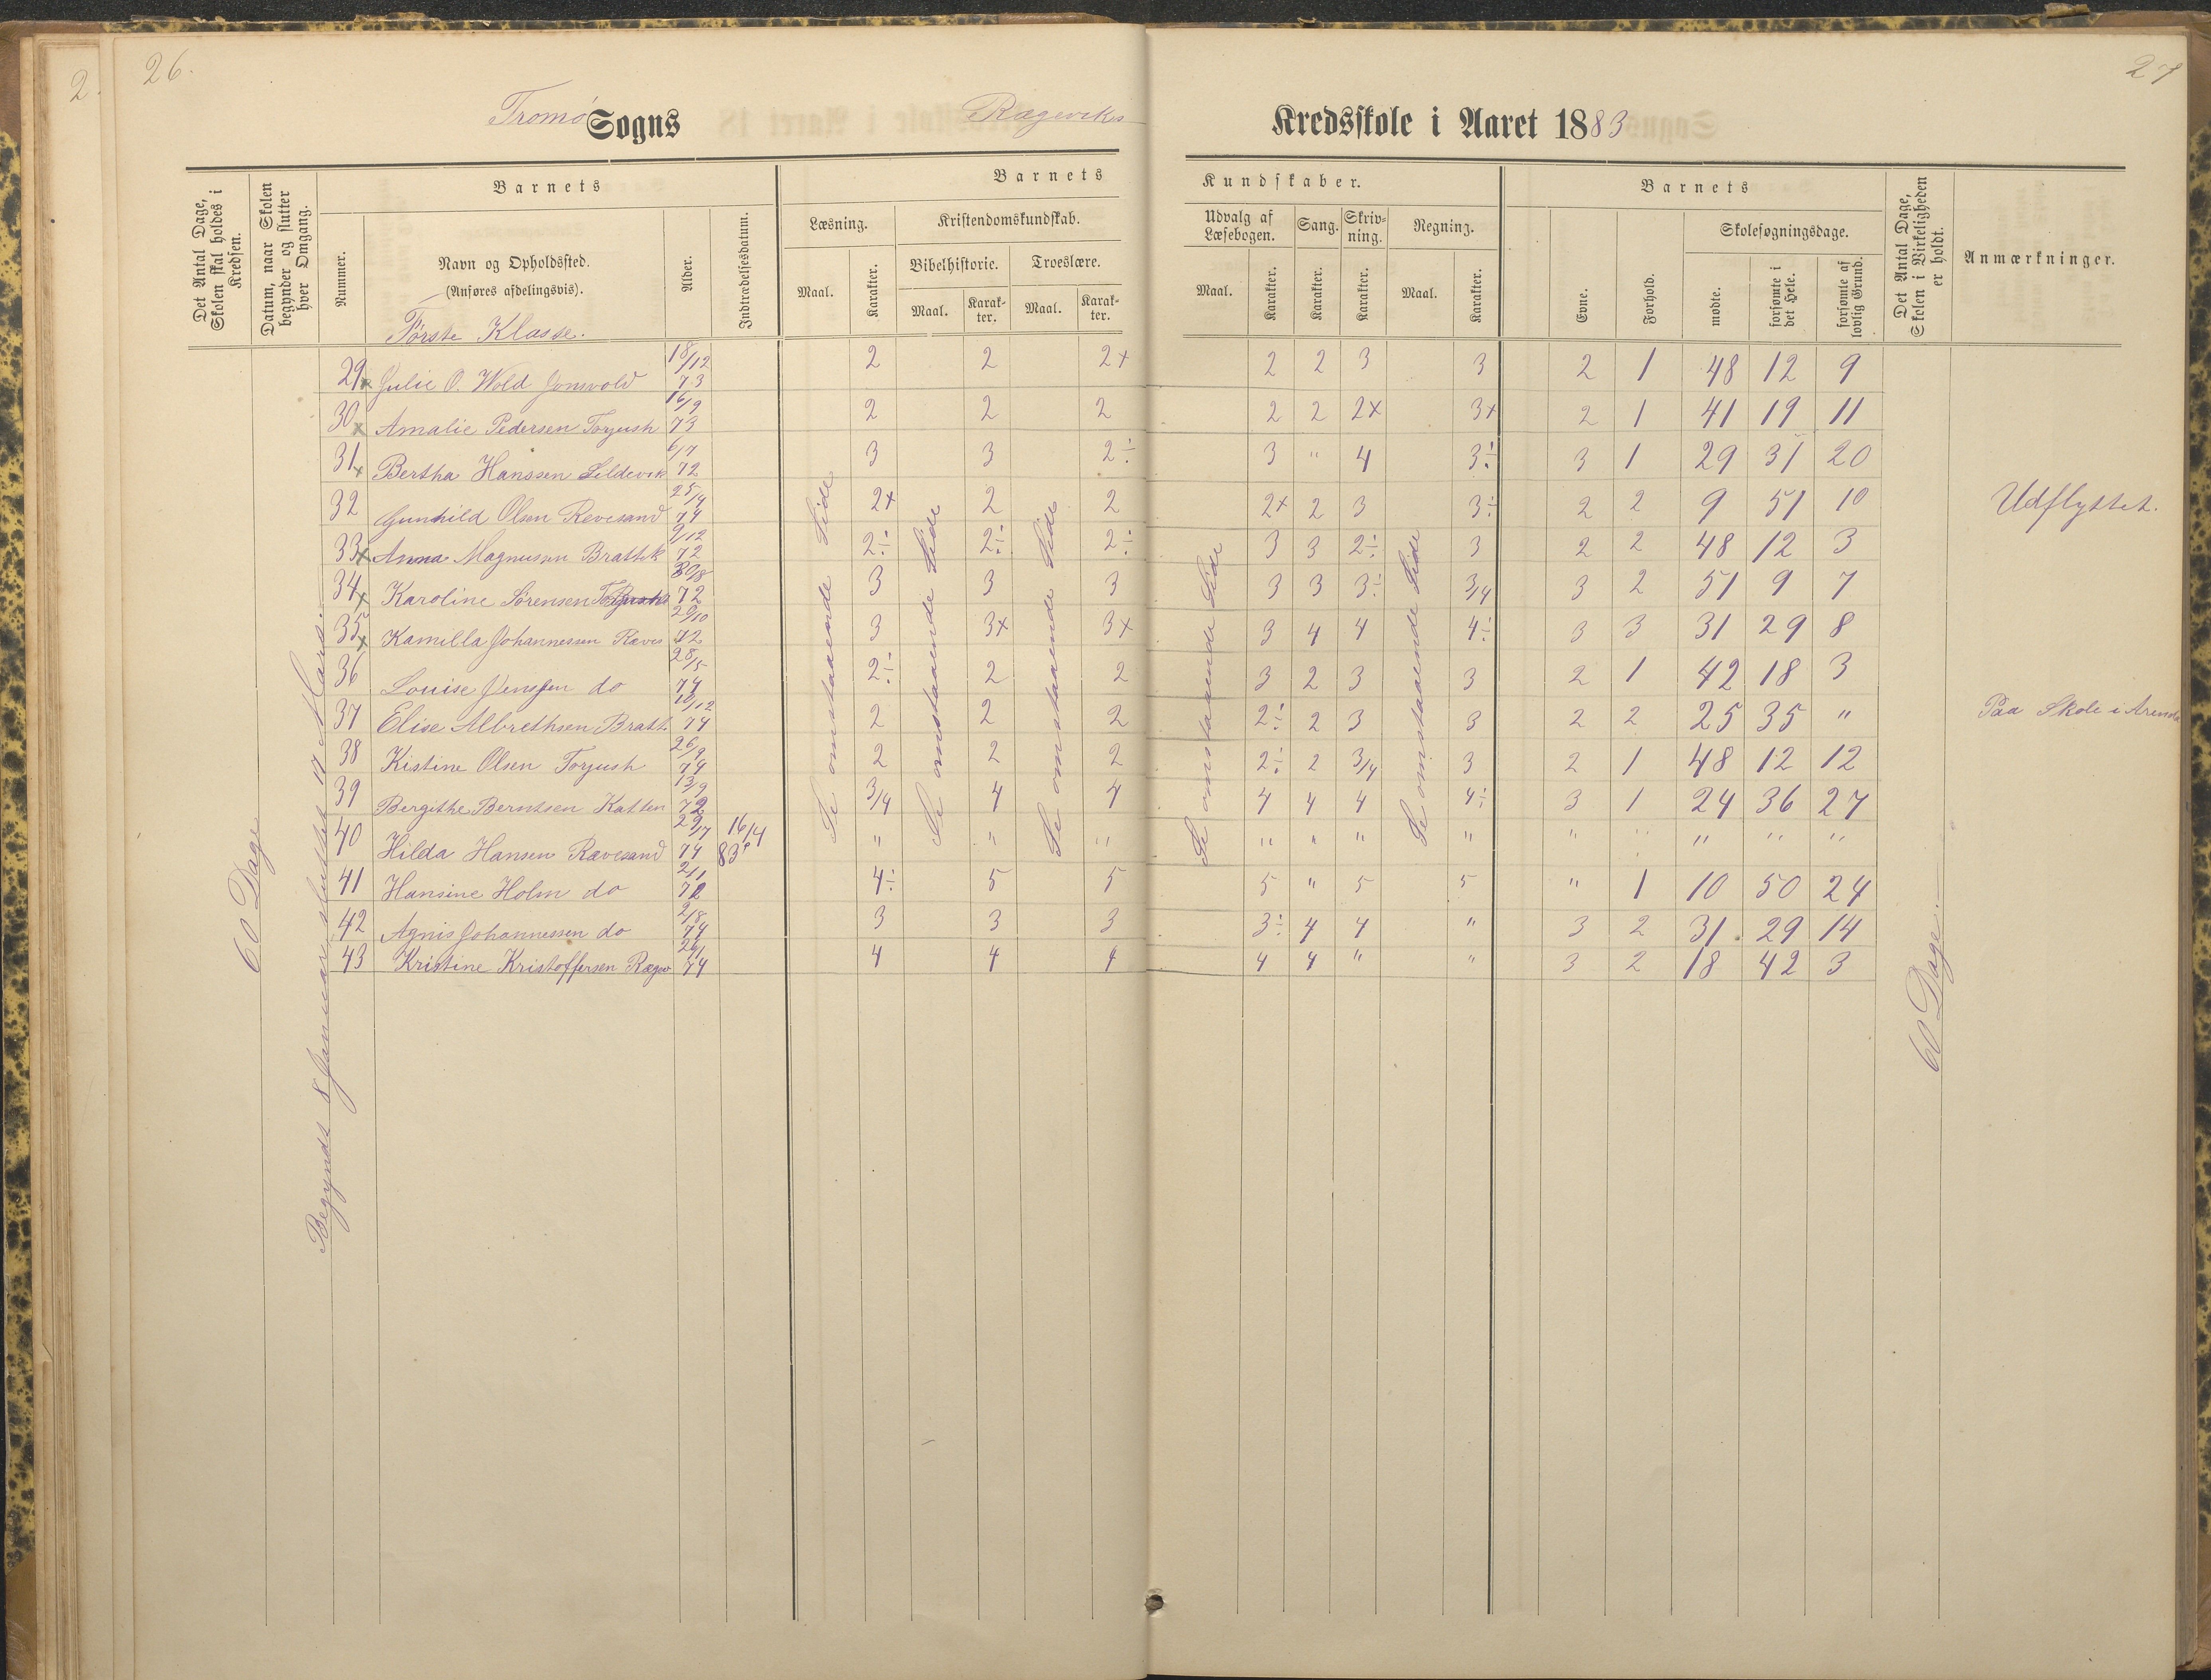 26.
27
2.
Tromø Sogns Rægeviks Kredsskole i Aaret 1883
Det Antal Dage, Skolen skal holdes i Kredsen.
Datum, naar Skolen begynder og slutter hver Omgang.
Barnets
Nummer.
Navn og Opholdssted.
(Anføres afdelingsvis).
Første Klasse.
Alder.
Indtrædelsesdatum.
Barnets Kundskaber.
Læsning.
Maal.
Karakter.
Kristendomskundskab.
Bibelhistorie.
Maal.
Karakter.
Troeslære.
Maal.
Karakter.
Udvalg af Læsebogen.
Maal.
Karakter.
Sang.
Karakter.
Skrivning.
Karakter.
Regning.
Maal.
Karakter.
Barnets
Evne.
Forhold.
Skolesøgningsdage.
mødte.
forsømte i det Hele.
forsømte af lovlig Grund.
Det Antal Dage, Skolen i Virkeligheden er holdt.
Anmærkninger.
60 Dage
Begyndt 8 Januar sluttet 17 Marts.
Se omstaaende Side
Se omstaaende Side
Se omstaaende Side
Se omstaaende Side
Se omstaaende Side
60 Dage.
29 x Julie O. Wold Jonsvold 18/12 73 2 2 2+ 2 2 3 3 2 1 48 12 9
30 x Amalie Pedersen Torjush 16/9 73 2 2 2 2 2 2x 3x 2 1 41 19 11
31 x Bertha Hanssen Sildevik 6/7 72 3 3 2÷ 3 " 4 3÷ 3 1 29 31 20
32 Gunhild Olsen Revesand 25/4 74 2+ 2 2 2+ 2 3 3÷ 2 2 9 51 10 Udflyttet.
33 x Anna Magnusen Brattek 9/12 72 2÷ 2÷ 2÷ 3 3 2÷ 3 2 2 48 12 3
34 x Karoline Sørensen Torjush 30/8 72 3 3 3 3 3 3÷ 3/4 3 2 51 9 7
35 x Kamilla Johannessen Ræves 29/10 72 3 3x 3x 3 4 4 4÷ 3 3 31 29 8
36 Louise Jenssen do 28/5 74 2÷ 2 2 3 2 3 3 2 1 42 18 3
37 Elise Albrethsen Bratt. 10/12 74 2 2 2 2÷ 2 3 3 2 2 25 35 " Paa Skole i Arendal
38 Kistine Olsen Torjush 26/9 74 2 2 2 2÷ 2 3/4 3 2 1 48 12 12
39 Bergithe Berntsen Katten 13/9 72 3/4 4 4 4 4 4 4÷ 3 1 24 36 27
40 Hilda Hansen Rævesand 29/7 74 16/4 83 " " " " " " " " " " " "
41 Hansine Holm do 2/1 72 4÷ 5 5 5 " 5 5 " 1 10 50 24
42 Agnis Johannessen do 2/8 74 3 3 3 3÷ 4 4 " 3 2 31 29 14
43 Kristine Kristoffersen Rægev 26/1 74 4 4 4 4 4 " " 3 2 18 42 3